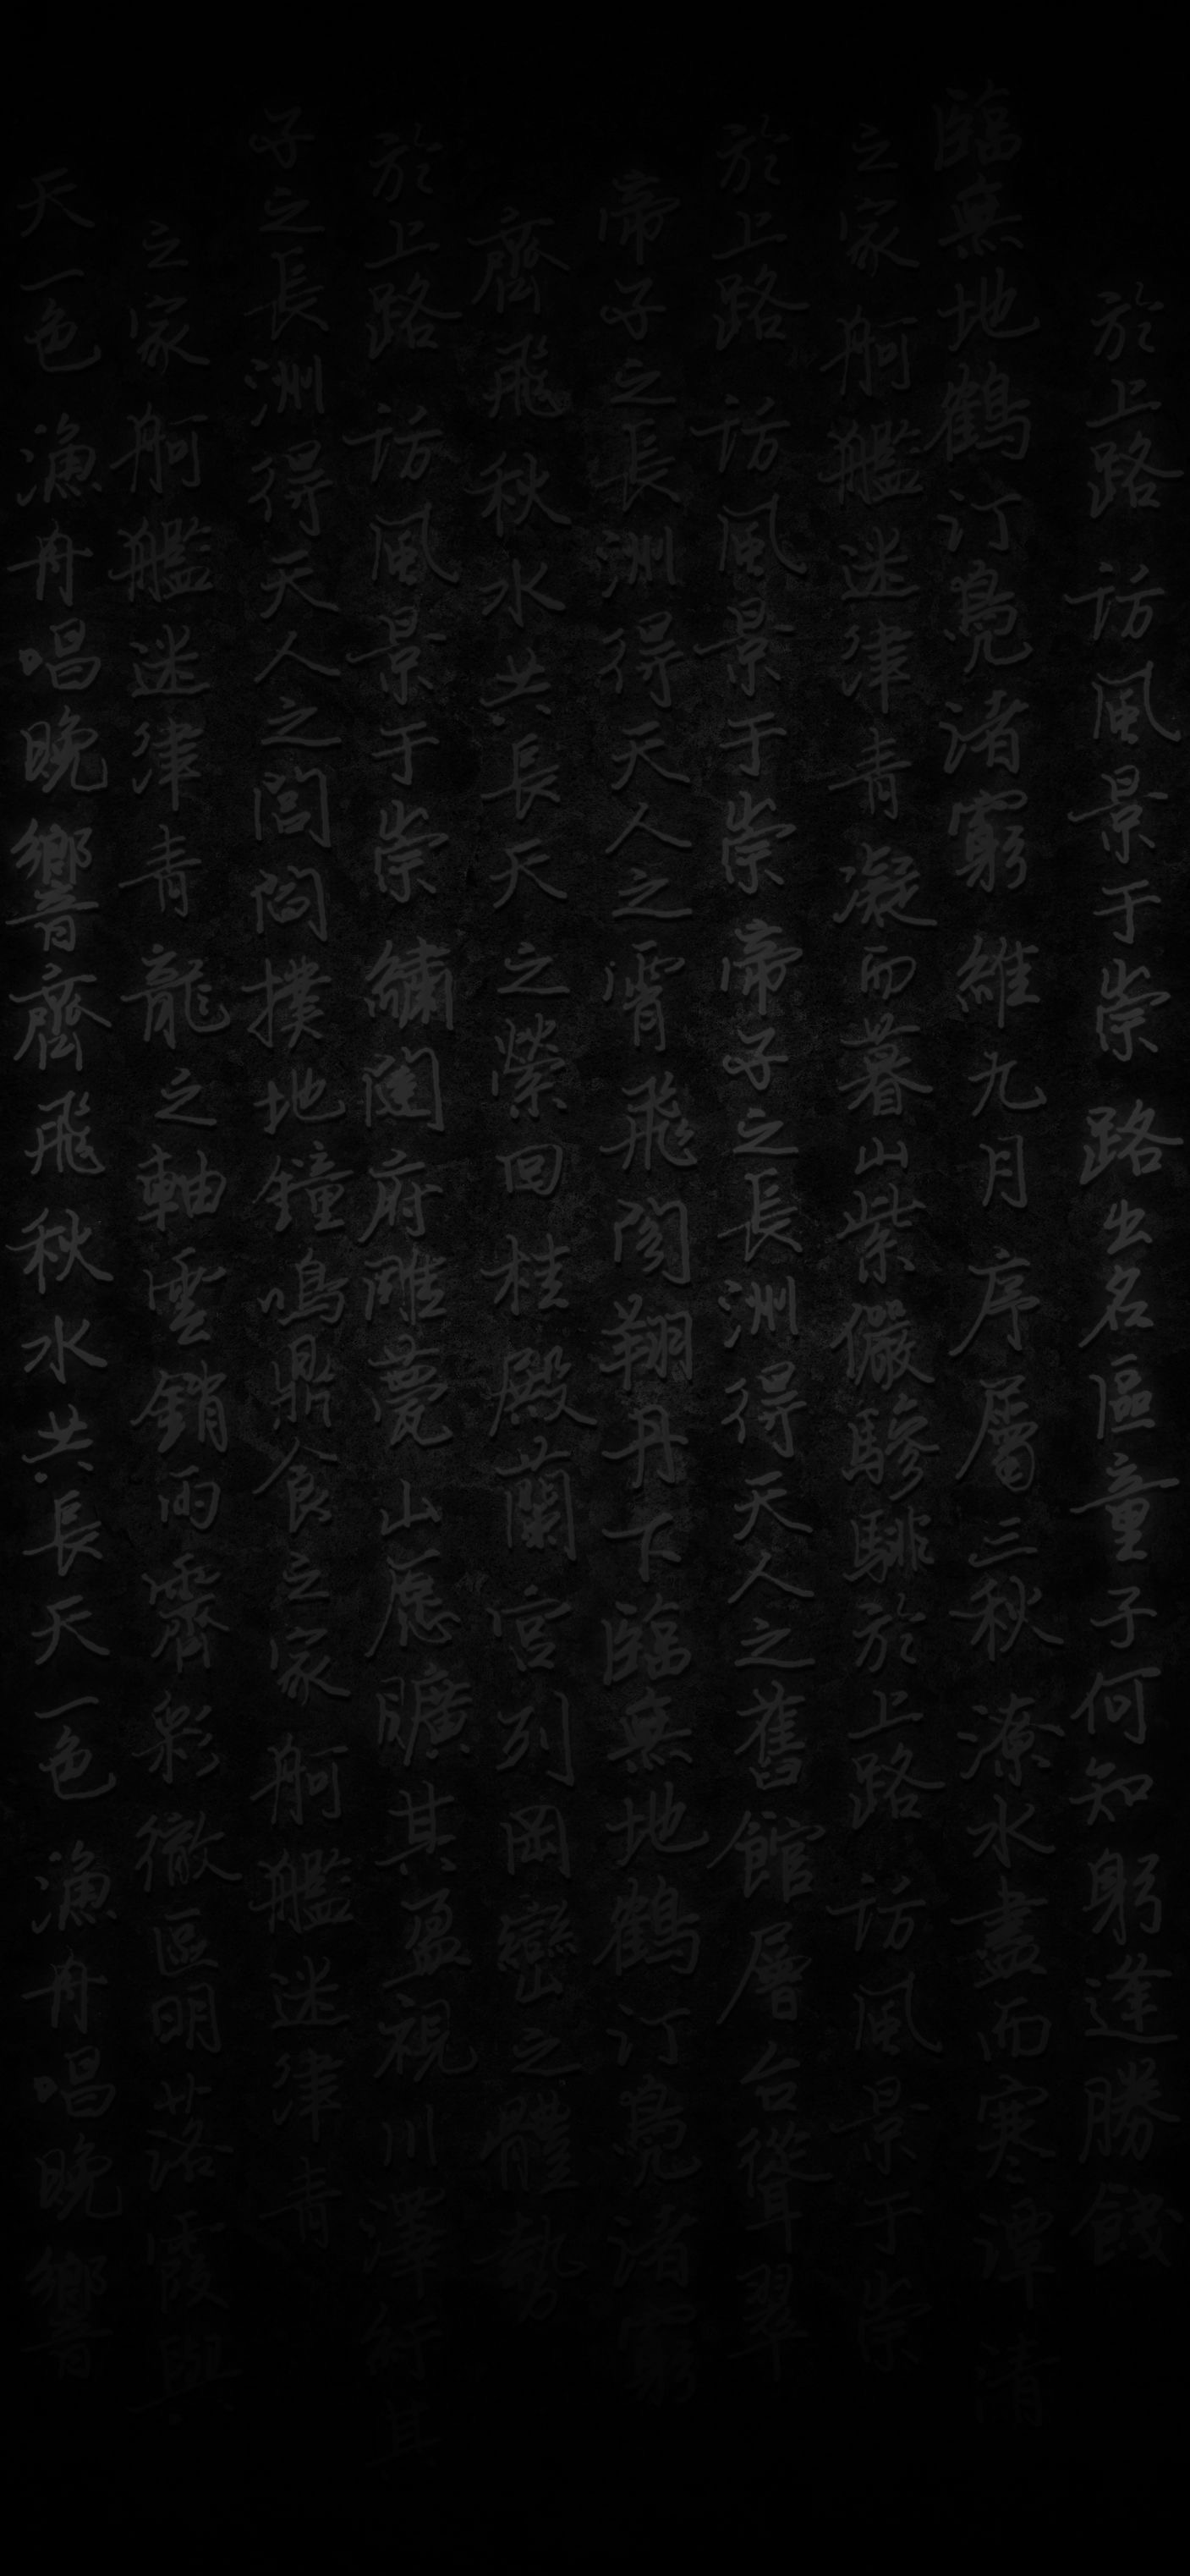 於上路 訪風景于崇 路出名區童子何知躬逢勝餞
臨無地鶴汀鳧渚窮 維九月序屬三秋 潦水盡而寒潭清
之家舸艦迷津青 凝而暮山紫儼驂騑於上路 訪風景于崇
於上路 訪風景于崇 帝子之長洲得天人之舊館層台聳翠
帝子之長洲得天人之 飛閣翔丹下臨無地鶴汀鳧渚窮
齊飛秋水共長天 之縈回桂殿蘭宮列岡巒之體勢
於上路 訪風景于崇 繡闥府雕甍山原曠其盈視川澤紆其
子之長洲得天人之閭閻撲地鐘鳴鼎食之家 舸艦迷津青
之家 舸艦迷津青龍之軸雲銷雨霽彩徹區明落霞與
天一色 漁舟唱晚響齊飛秋水共長天一色 漁舟唱晚響